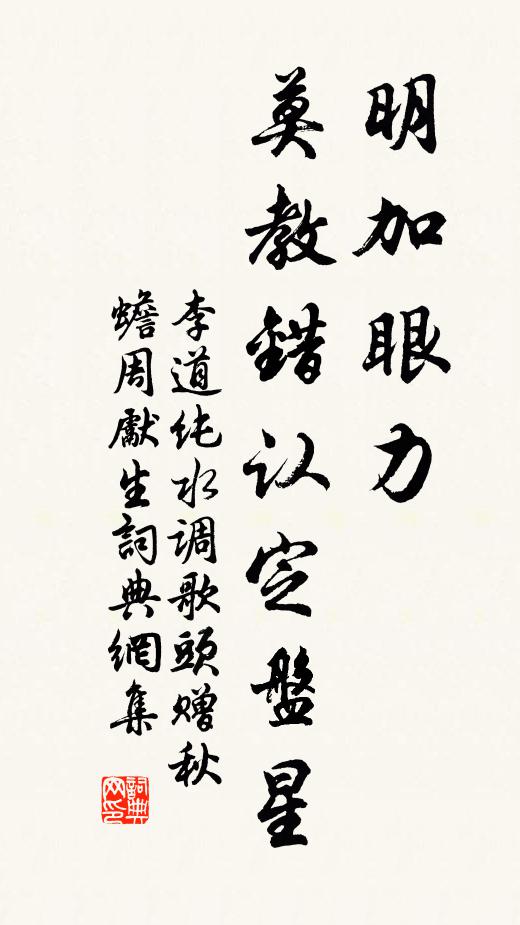 明加眼力
莫教錯认定盤星
李道纯水调歌頭赠秋
蟾周獻生詞典網集
詞典网印